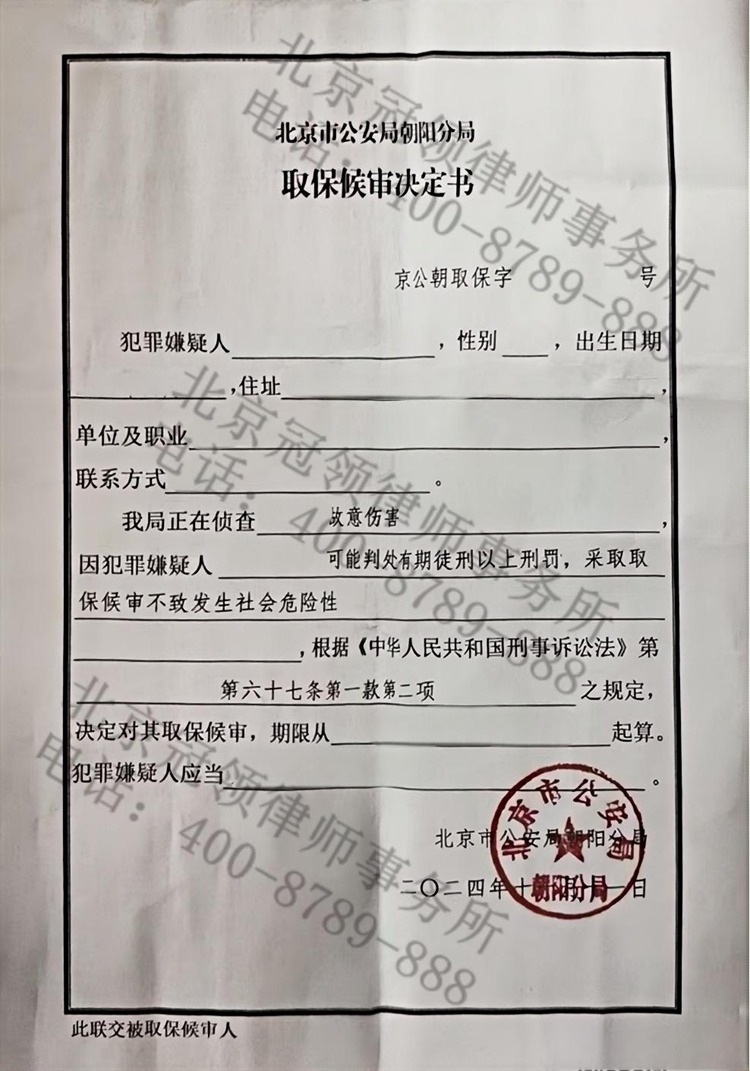 北京市公安局朝阳分局
取保候审决定书
京公朝取保字 号
犯罪嫌疑人 ，性别 ，出生日期
，住址 ，
单位及职业 ，
联系方式 。
我局正在侦查 故意伤害 ，
因犯罪嫌疑人 可能判处有期徒刑以上刑罚，采取取
保候审不致发生社会危险性
，根据《中华人民共和国刑事诉讼法》第
第六十七条第一款第二项 之规定，
决定对其取保候审，期限从 起算。
犯罪嫌疑人应当 。
北京市公安局朝阳分局
二〇二四年十 月 一日
北京市公安局
朝阳分局
此联交被取保候审人
北京冠领律师事务所
电话：400-8789-888
北京冠领律师事务所
电话：400-8789-888
北京冠领律师事务所
电话：400-8789-888